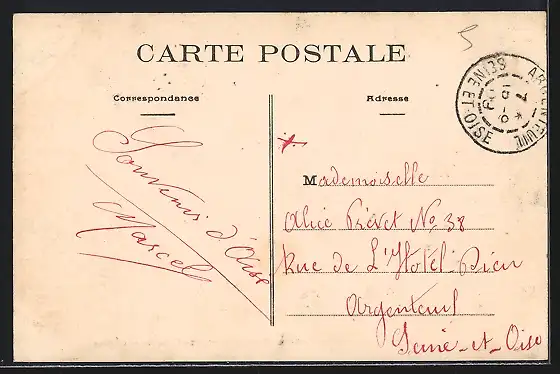 5
CARTE POSTALE
Correspondance
Adresse
ARGENTEUIL
SEINE ET OISE
Souvenir d'Oise
Marcel
Mademoiselle
Alice Prévet No 38
Rue de L'Hotel-Dieu
Argenteuil
Seine-et-Oise